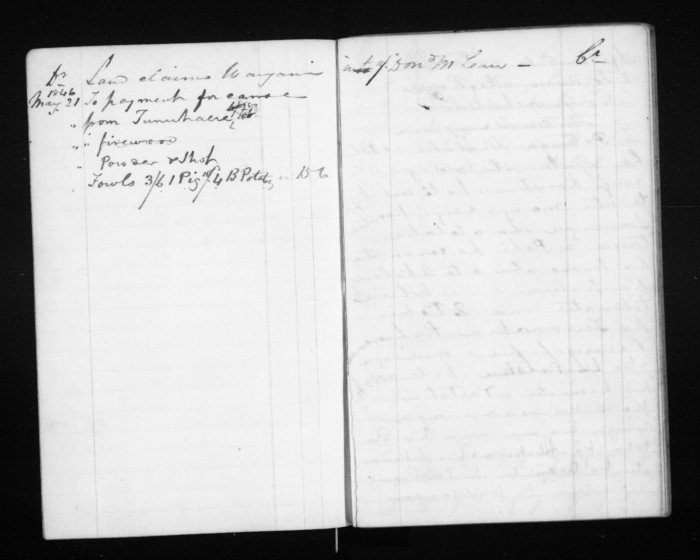 Dr Land claims Wanganui
1846
May 21 To payment for canoe
from Tunuhaere
" " firewood
" Powder & Shot
Fowls 3/6 1 Pig 4 B Potatoes 15-6
a/c of Don'd McLean - Cr